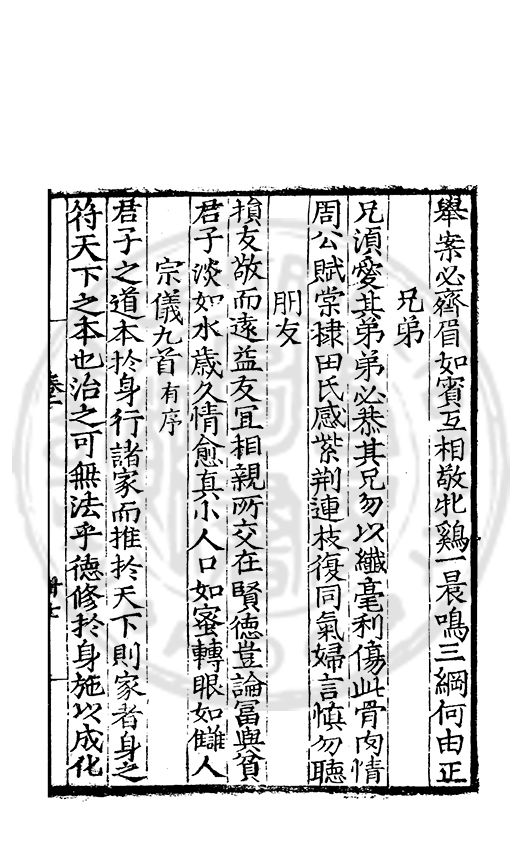 舉案必齊眉如賓互相敬牝鷄一晨鳴三綱何由正
兄弟
兄湏愛其弟弟必恭其兄勿以纖毫利傷此骨肉情
周公賦棠棣田氏感紫荆連枝復同氣婦言慎勿聽
朋友
損友敬而遠益友宜相親所交在賢德豈論富與貧
君子淡如水歲久情愈真小人口如蜜轉眼如讎人
宗儀九首有序
君子之道本於身行諸家而推於天下則家者身之
符天下之本也治之可無法乎德修於身施以成化